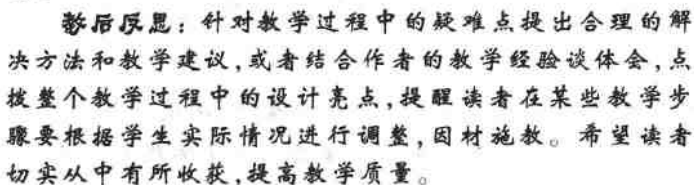 教后反思：针对教学过程中的疑难点提出合理的解
决方法和教学建议，或者结合作者的教学经验谈体会，点
拨整个教学过程中的设计亮点，提醒读者在某些教学步
骤要根据学生实际情况进行调整，因材施教。希望读者
切实从中有所收获，提高教学质量。